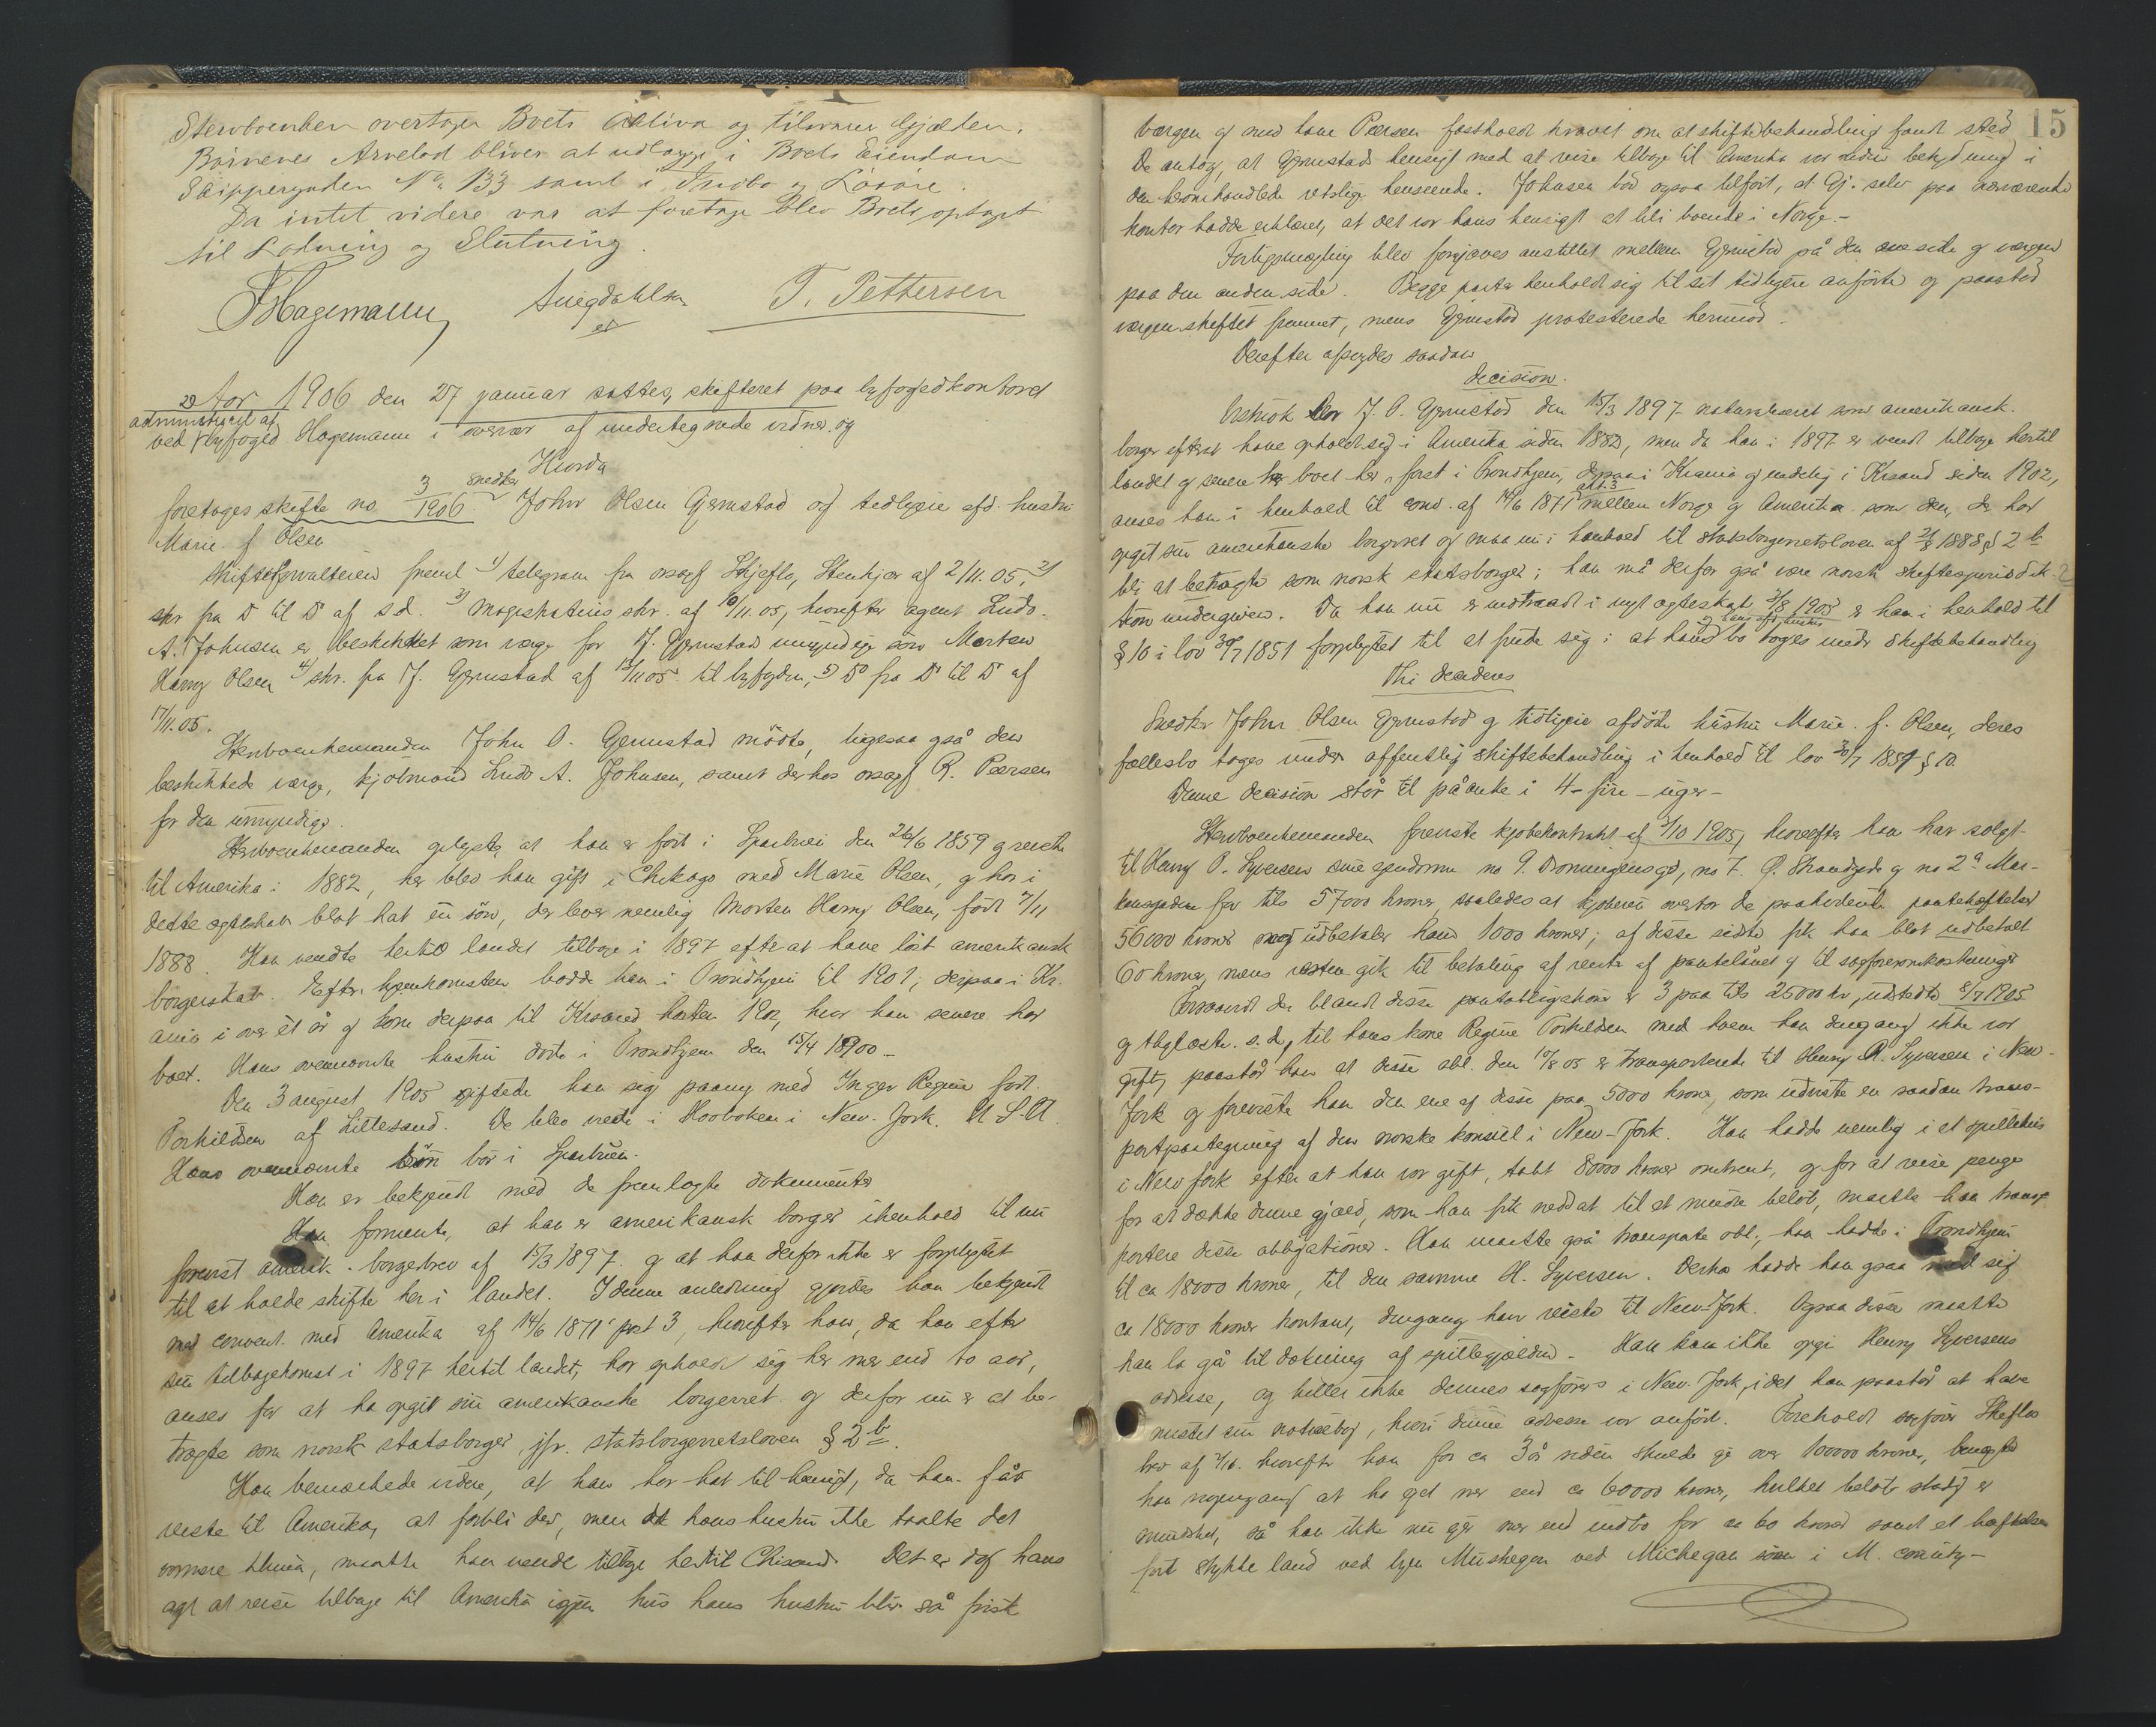 Stervboenken overtager Boets Activa og tilsvarer Gjælden.
Børnenes Arvelod bliver at udlægge i Boets Eiendom
Skippergaden No 133 samt i Indbo og Løsøre.
Da intet videre var at foretage blev Boets optaget
til Lodning og Slutning.
FHagemann T. Pettersen
Aar 1906 den 27 januar sattes skifteret paa byfogedkontoret
administreret af
ved byfoged Hagemann i overvær af undertegnede vidner, og
Hvorda
foretoges skifte no 3/1906 snedker John Olsen Gjermstad og tidligere afd. hustru
Marie f. Olsen
Skifteforvalteren freml 1) telegram fra orsagf Skjeflo, Stenkjær af 2/11.05, 2)
skr fra D til D af s.d. 3) Magistratens skr. af 10/11.05, hvorefter agent Ludv.
A. Johnsen er beskikket som værge for J. Gjermstad umyndige søn Morten
Harry Olsen 4) skr. fra J. Gjermstad af 13/11 05 til byfogden, 5) Do fra D til D af
17/11.05.
Stervboenkemanden John O. Gjermstad mødte, ligesaa også den
beskikkede værge, kjøbmand Ludv A. Johnsen, samt derhos orsagf R. Peersen
for den umyndige.
Stervboenkemanden oplyste, at han er født i Sparbuen den 26/6 1859 g reiste
til Amerika i 1882, her blev han gift i Chikago med Marie Olsen, g har i
dette ægteskab blot hat en søn, der lever nemlig Morten Harry Olsen, født 7/11
1888. Han vendte hertil landet tilbage i 1897 efterat have løst amerikansk
borgerskab. Efter hjemkomsten bodde han i Trondhjem til 1901, derpaa i Kr.
ania i over et år g kom derpaa til Krsand høsten 1902, hvor han senere har
boet. Hans ovennævnte hustru døde i Trondhjem den 15/4 1900 –
Den 3 august 1905 giftede han sig paany med Inger Regine født
Torkildsen af Lillesand. De blev viede i Hooboken i New-York. U S A.
Hans ovennævnte søn bor i Sparbuen.
Han er bekjendt med de fremlagte dokumenter
Han formente, at han er amerikansk borger ihenhold til nu
forevist amerik. borgerbrev af 15/3 1897. g at han derfor ikke er forpligtet
til at holde skifte her i landet. I denne anledning gjordes han bekjendt
med convent. med Amerika af 14/6 1871 post 3, hvorefter han, da han efter
sin tilbagekomst i 1897 hertil landet, har opholdt sig her mer end to aar,
anses for at ha opgit sin amerikanske borgerret og derfor nu er at be-
tragte som norsk statsborger, jfr. statsborgerretsloven § 2 b.
Han bemærkede videre, at han har hat til hensigt, da han før
reiste til Amerika, at forbli der, men da hans hustru ikke taalte det
varmere klima, maatte han vende tilbage hertil Chrsand. Det er dog hans
agt at reise tilbage til Amerika igjen hvis hans hustru blir så frisk
15
Værgen g med ham Peersen fastholdt kravet om at skiftebehandling fandt sted
De antog, at Gjermstads hensigt med at reise tilbage til Amerika var uden betydning i
den heromhandlede retslige henseende. Johnsen bad ogsaa tilført, at Gj. selv paa nærværende
kontor hadde erklæret, at det var hans hensigt at bli boende i Norge. –
Forligsmægling blev forgjæves anstillet mellem Gjermstad på den ene side g værgen
paa den anden side. Begge parter henholdt sig til sit tidligere anførte og paastod
værgen skiftet fremmet, mens Gjermstad protesterede herimod.
Derefter afsagdes saadan
decision.
Vistnok blev J. O. Gjermstad den 15/3 1897 naturaliseret som amerikansk
borger efterat have opholdt sig i Amerika siden 1882, men da han i 1897 er vendt tilbage hertil
landet g senere har boet her, først i Trondhjem, derpaa i Krania g endelig i Krsand siden 1902,
art. 3
anses han i henhold til conv. af 14/6 1871 mellem Norge g Amerika som den, der har
opgit sin amerikanske borgerret og maa nu i henhold til statsborgerretsloven af 21/4 1888 § 2 b
bli at betragte som norsk statsborger; han må derfor også være norsk skiftesjurisdik-
tion undergiven. Da han nu er indtraadt i nyt ægteskab 3/8 1905 er han i henhold til
g hans afd. hustrus
§ 10 i lov 30/7 1851 forpligtet til at finde sig i at hans bo tages under skiftebehandling
Thi decideres
Snedker John Olsen Gjermstad g tidligere afdøde hustru Marie f. Olsen, deres
fællesbo tages under offentlig skiftebehandling i henhold til lov 30/7 1851 § 10.
Denne decision står til påanke i 4 – fire – uger –
Stervboenkemanden foreviste kjøbekontrakt af 2/10 1905, hvorefter han har solgt
til Henry O. Syversen sine eiendomme no 9. Dronningensgd, no 7. Ø. Strandgade g no 2a Mar-
kensgaden for tils 57000 kroner, saaledes at kjøberen overtar de paahvilende panteheftelser
56000 kroner mens udbetaler ham 1000 kroner; af disse sidste fik han blot udbetalt
60 kroner, mens resten gik til betaling af renter af pantelånet g til sagføreromkostninger
Forsaavidt der blandt disse panteobligationer er 3 paa tils 25000 kr, udstedte 8/7 1905
g tinglæste. s.d., til hans kone Regine Torkildsen med hvem han dengang ikke var
gift, paastår han at disse obl. den 15/8 05 er transporterede til Henry R. Syversen i New-
York og foreviste han den ene af disse paa 5000 kroner, som udviste en saadan trans-
portpaategning af den norske konsul i New-York. Han hadde nemlig i et spillehus
i New York efter at han var gift, tabt 80000 kroner omtrent, g for at reise penge
for at dække denne gjæld, som han fik nedsat til et mindre beløb, maatte han trans-
portere disse obligationer. Han maatte også transportere obl., han hadde i Trondhjem
til ca 18000 kroner, til den samme H. Syversen. Derhos hadde han ogsaa med sig
ca 18000 kroner kontant, dengang han reiste til New-York. Ogsaa disse maatte
han la gå til dækning af spillegjælden – Han kan ikke opgi Henry Syversens
adresse, og heller ikke dennes sagførers i New-York, idet han paastår at have
mistet sin notisebog, hvori denne adresse var anført. Foreholdt sagfører Skjeflos
brev af 2/11. hvorefter han for ca 3 år siden skulde eje over 100000 kroner, benægter
han nogengang at ha eiet mer end ca 60000 kroner, hvilket beløb stadig er
mindsket, så han ikke nu eier mer end indbo for ca 60 kroner samt et
frit stykke land ved byen Muskegon ved Michegan søen i M. county –